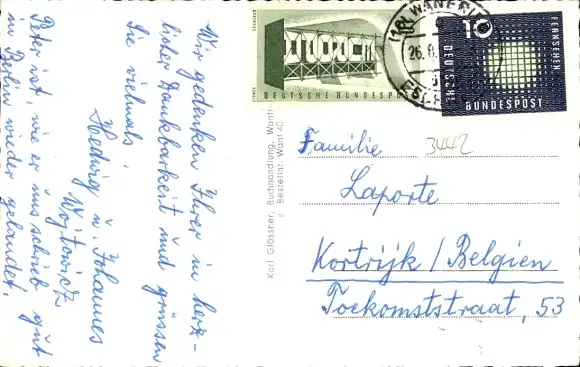 Wir gedenken Ihrer in herz-
licher Dankbarkeit und grüssen
Sie vielmals.
Hedwig u. Johannes
Wojtowicz
Peter ist, wie er uns schrieb gut
in Berlin wieder gelandet.
Karl Glässner, Buchhandlung, Wanf
Bestellnr. Wanf 40
DEUTSCHE BUNDESPOST
WANFR
26.8.
10
FERNSEHEN
DEUTSCHE
BUNDESPOST
Familie
3442
Laporte
Kortrijk / Belgien
Toekomststraat, 53